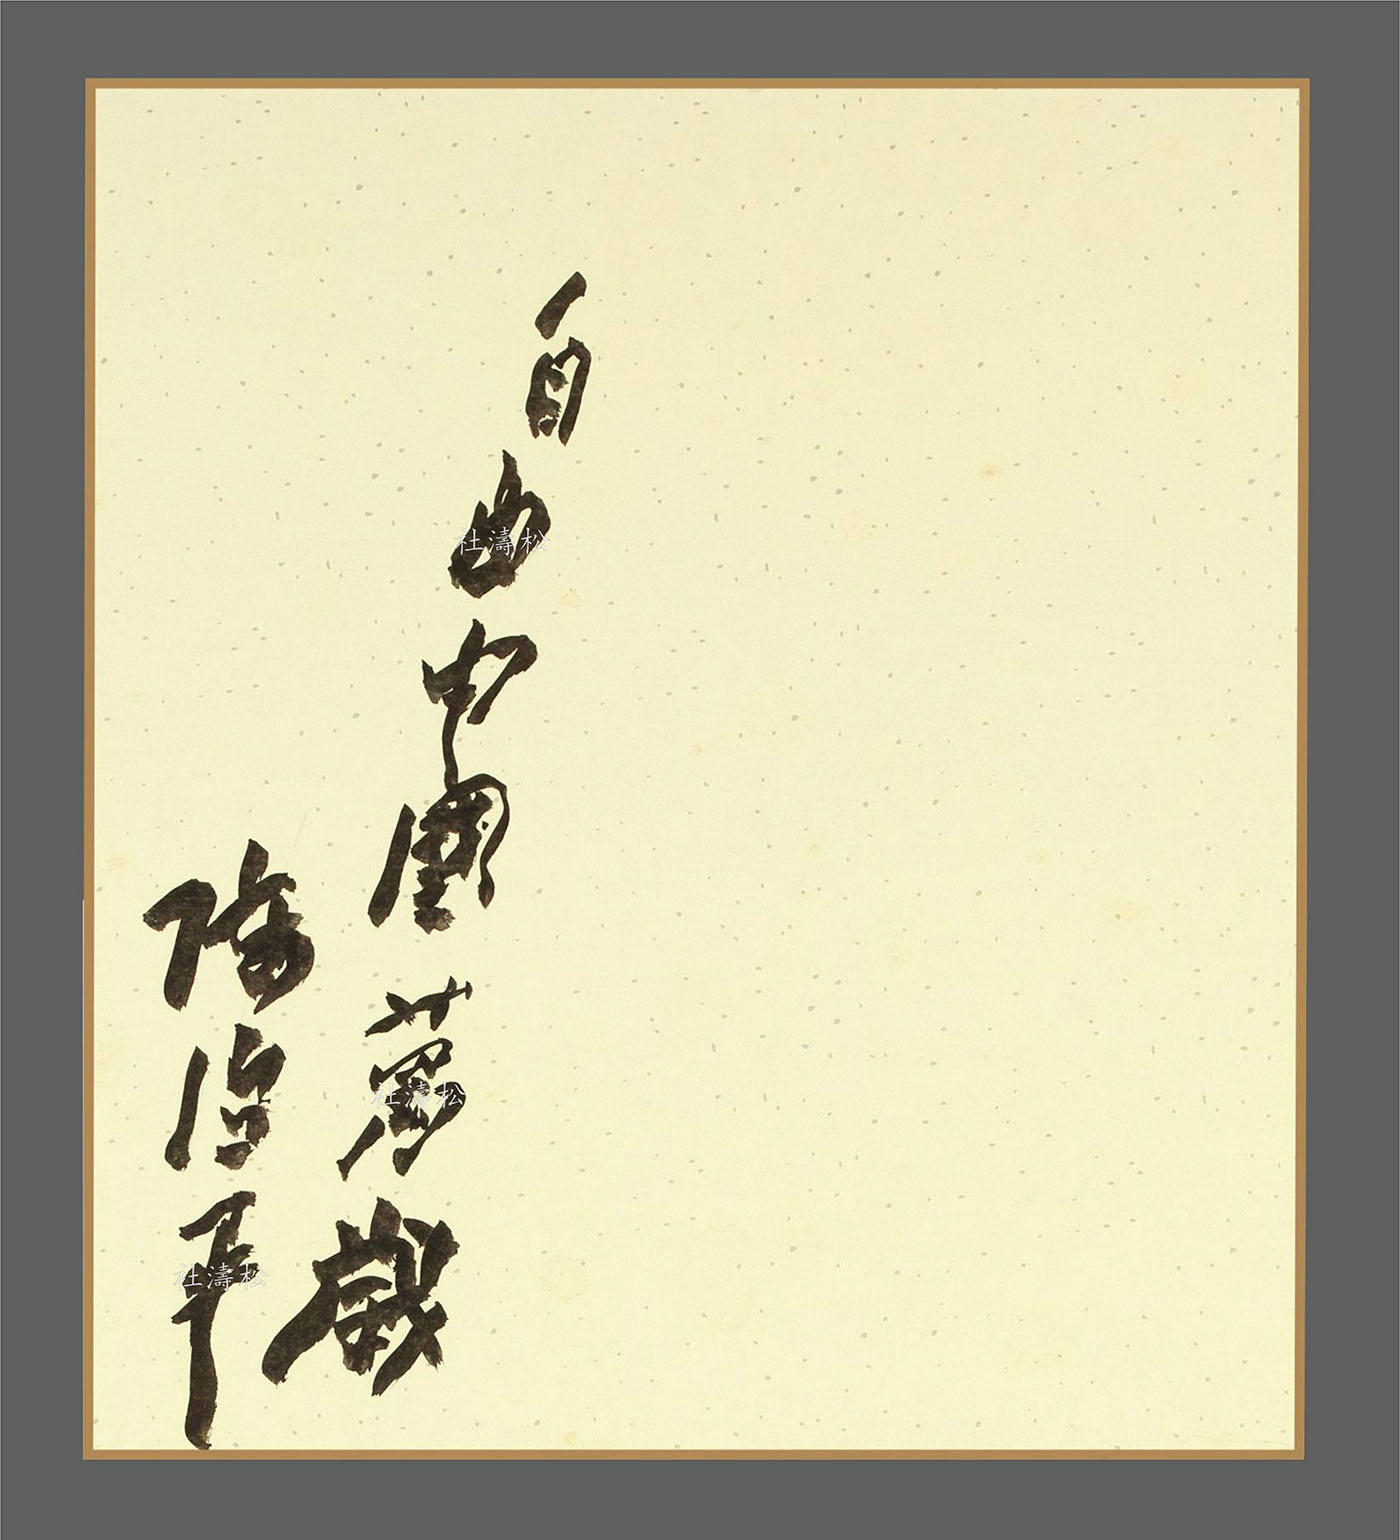 自由中國萬歲
陶滌平
杜濤松
杜濤松
杜濤松